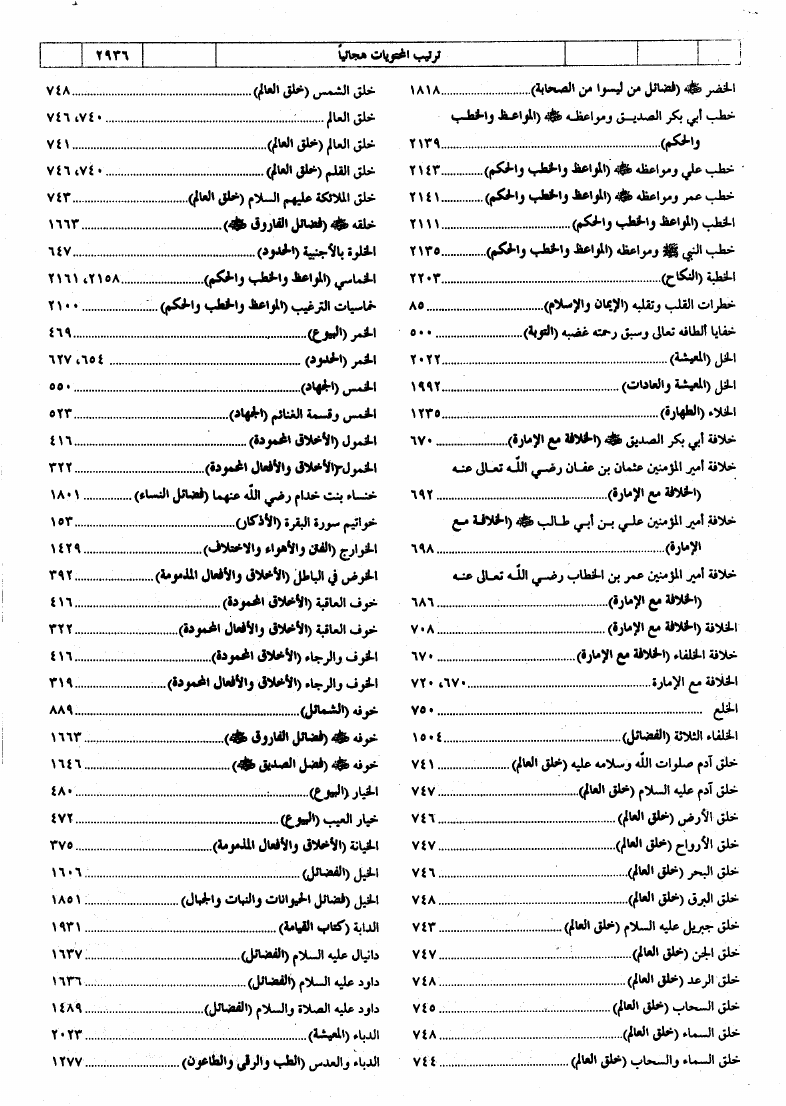 ترتيب المحتويات هجائياً
٢٩٣٦
الخضر ﷺ (فضائل من ليسوا من الصحابة)....١٨١٨
خطب أبي بكر الصديق ومواعظه ﷺ (المواعظ والخطب
والحكم)....٢١٣٩
خطب علي ومواعظه ﷺ (المواعظ والخطب والحكم)....٢١٤٣
خطب عمر ومواعظه ﷺ (المواعظ والخطب والحكم)....٢١٤١
الخطب (المواعظ والخطب والحكم)....٢١١١
خطب النبي ﷺ ومواعظه (المواعظ والخطب والحكم)....٢١٣٥
الخطبة (النكاح)....٢٢٠٣
خطرات القلب وتقلبه (الإيمان والإسلام)....٨٥
خفايا ألطافه تعالى وسبق رحمته غضبه (التوبة)....٥٠٠
الخل (المعيشة)....٢٠٢٢
الخل (المعيشة والعادات)....١٩٩٢
الخلاء (الطهارة)....١٢٣٥
خلافة أبي بكر الصديق ﷺ (الخلافة مع الإمارة)....٦٧٠
خلافة أمير المؤمنين عثمان بن عفان رضي اللّه تعالى عنه
(الخلافة مع الإمارة)....٦٩٢
خلافة أمير المؤمنين علي بن أبي طالب ﷺ (الخلافة مع
الإمارة)....٦٩٨
خلافة أمير المؤمنين عمر بن الخطاب رضي اللّه تعالى عنه
(الخلافة مع الإمارة)....٦٨٦
الخلافة (الخلافة مع الإمارة)....٧٠٨
خلافة الخلفاء (الخلافة مع الإمارة)....٦٧٠
الخلافة مع الإمارة....٦٧٠، ٧٢٠
الخلع....٧٥٠
الخلفاء الثلاثة (الفضائل)....١٥٠٤
خلق آدم صلوات اللّه وسلامه عليه (خلق العالم)....٧٤١
خلق آدم عليه السلام (خلق العالم)....٧٤٧
خلق الأرض (خلق العالم)....٧٤٦
خلق الأرواح (خلق العالم)....٧٤٧
خلق البحر (خلق العالم)....٧٤٦
خلق البرق (خلق العالم)....٧٤٨
خلق جبريل عليه السلام (خلق العالم)....٧٤٣
خلق الجن (خلق العالم)....٧٤٧
خلق الرعد (خلق العالم)....٧٤٨
خلق السحاب (خلق العالم)....٧٤٥
خلق السماء (خلق العالم)....٧٤٨
خلق السماء والسحاب (خلق العالم)....٧٤٤
خلق الشمس (خلق العالم)....٧٤٨
خلق العالم....٧٤٠، ٧٤٦
خلق العالم (خلق العالم)....٧٤١
خلق القلم (خلق العالم)....٧٤٠، ٧٤٦
خلق الملائكة عليهم السلام (خلق العالم)....٧٤٣
خلقه ﷺ (فضائل الفاروق ﷺ)....١٦٦٣
الخلوة بالأجنبية (الحدود)....٦٤٧
الخماسي (المواعظ والخطب والحكم)....٢١٥٨، ٢١٦١
خماسيات الترغيب (المواعظ والخطب والحكم)....٢١٠٠
الخمر (البيوع)....٤٦٩
الخمر (الحدود)....٦٥٤، ٦٢٧
الخمس (الجهاد)....٥٥٠
الخمس وقسمة الغنائم (الجهاد)....٥٢٣
الخمول (الأخلاق المحمودة)....٤١٦
الخمول (الأخلاق والأفعال المحمودة)....٣٢٢
خنساء بنت خدام رضي اللّه عنهما (فضائل النساء)....١٨٠١
خواتيم سورة البقرة (الأذكار)....١٥٣
الخوارج (الفتن والأهواء والاختلاف)....١٤٢٩
الخوض في الباطل (الأخلاق والأفعال المذمومة)....٣٩٢
خوف العاقبة (الأخلاق المحمودة)....٤١٦
خوف العاقبة (الأخلاق والأفعال المحمودة)....٣٢٢
الخوف والرجاء (الأخلاق المحمودة)....٤١٦
الخوف والرجاء (الأخلاق والأفعال المحمودة)....٣١٩
خوفه (الشمائل)....٨٨٩
خوفه ﷺ (فضائل الفاروق ﷺ)....١٦٦٣
خوفه ﷺ (فضل الصديق ﷺ)....١٦٤٦
الخيار (البيوع)....٤٨٠
خيار العيب (البيوع)....٤٧٢
الخيانة (الأخلاق والأفعال المذمومة)....٣٧٥
الخيل (الفضائل)....١٦٠٦
الخيل (فضائل الحيوانات والنبات والجبال)....١٨٥١
الدابة (كتاب القيامة)....١٩٣١
دانيال عليه السلام (الفضائل)....١٦٣٧
داود عليه السلام (الفضائل)....١٦٣٦
داود عليه الصلاة والسلام (الفضائل)....١٤٨٩
الدباء (المعيشة)....٢٠٢٣
الدباء والعدس (الطب والرقى والطاعون)....١٢٧٧